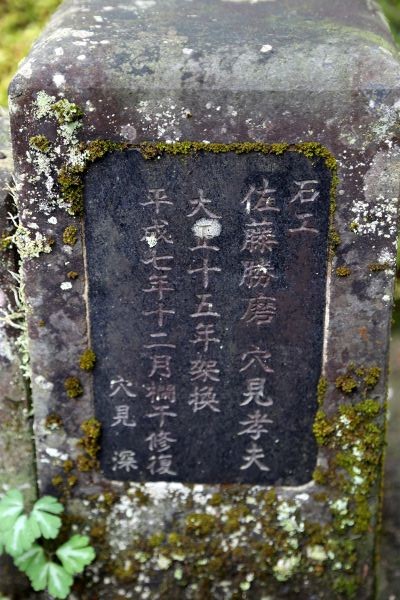 石工
佐藤勝磨 穴見孝夫
大正十五年架換
平成七年十二月欄干修復
穴見 深